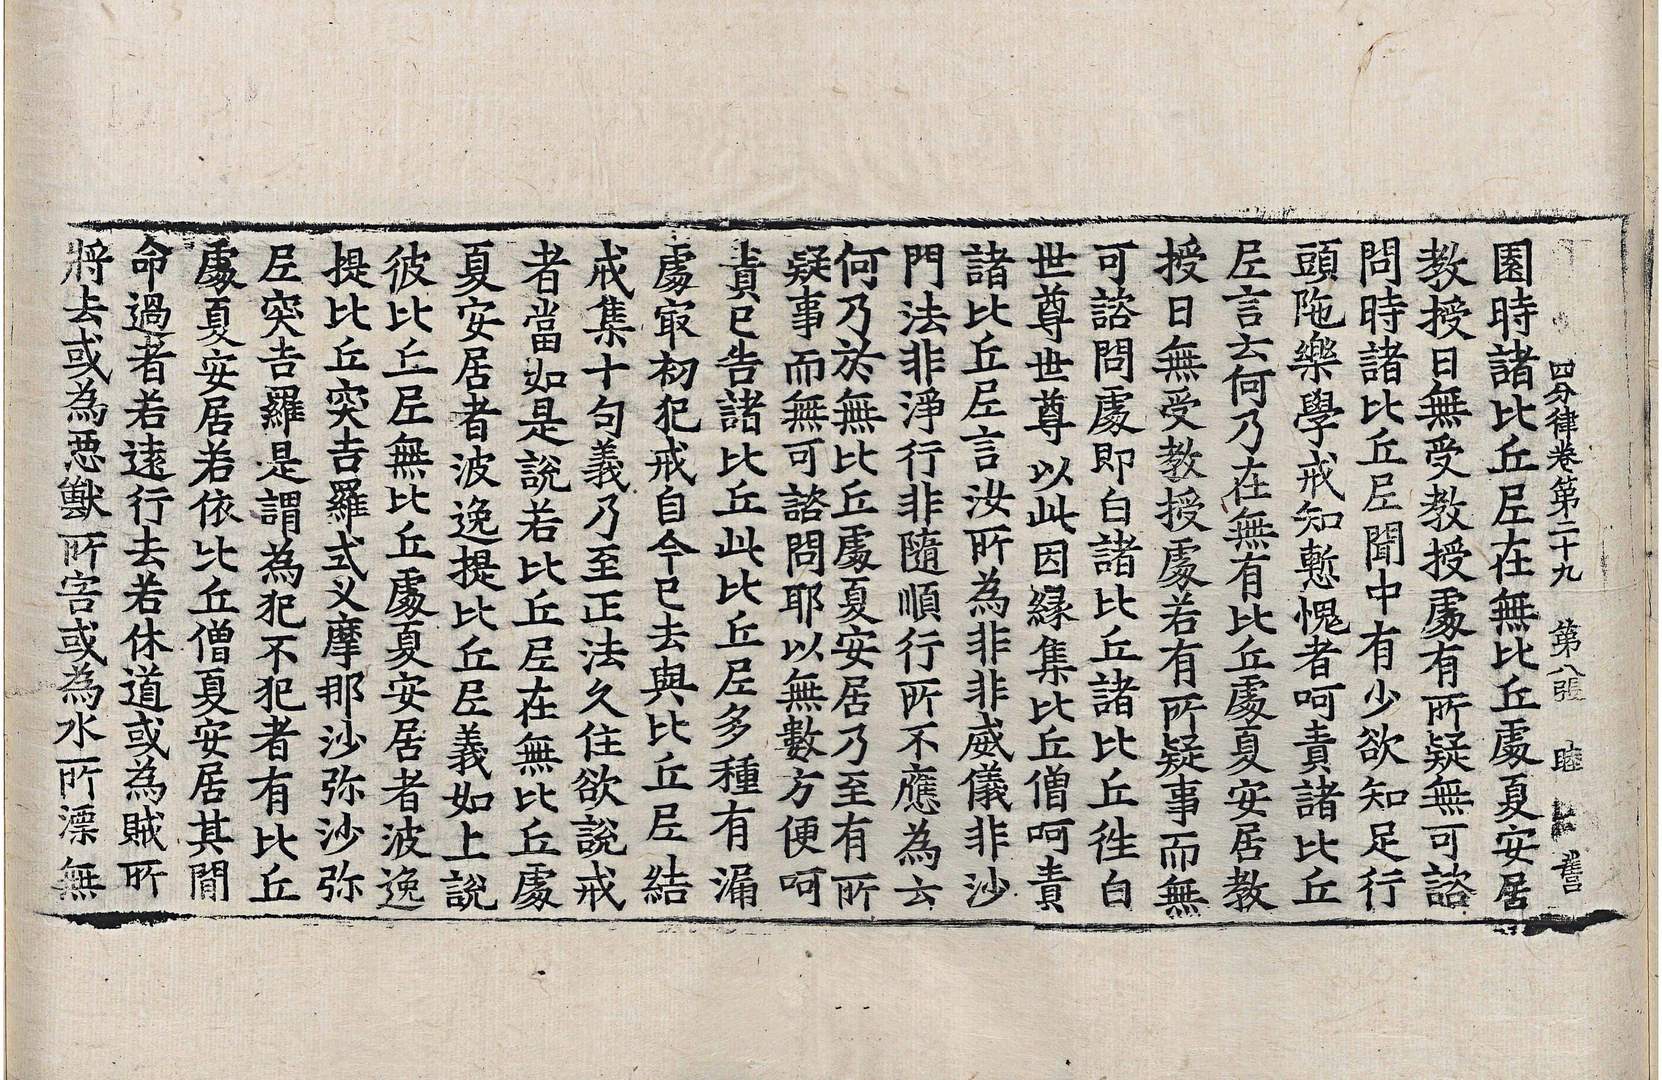 四分律卷第二十九　第八張　睦
園時諸比丘尼在無比丘處夏安居
教授日無受教授處有所疑無可諮
問時諸比丘尼聞中有少欲知足行
頭陁樂學戒知慙愧者呵責諸比丘
尼言云何乃在無有比丘處夏安居教
授日無受教授處若有所疑事而無
可諮問處即白諸比丘諸比丘徃白
世尊世尊以此因緣集比丘僧呵責
諸比丘尼言汝所為非非威儀非沙
門法非淨行非隨順行所不應為云
何乃於無比丘處夏安居乃至有所
疑事而無可諮問耶以無數方便呵
責已告諸比丘此比丘尼多種有漏
處㝡初犯戒自今已去與比丘尼結
戒集十句義乃至正法久住欲說戒
者當如是說若比丘尼在無比丘處
夏安居者波逸提比丘尼義如上說
彼比丘尼無比丘處夏安居者波逸
提比丘突吉羅式叉摩那沙弥沙弥
尼突吉羅是謂為犯不犯者有比丘
處夏安居若依比丘僧夏安居其間
命過者若遠行去若休道或為賊所
將去或為惡獸所害或為水所漂無